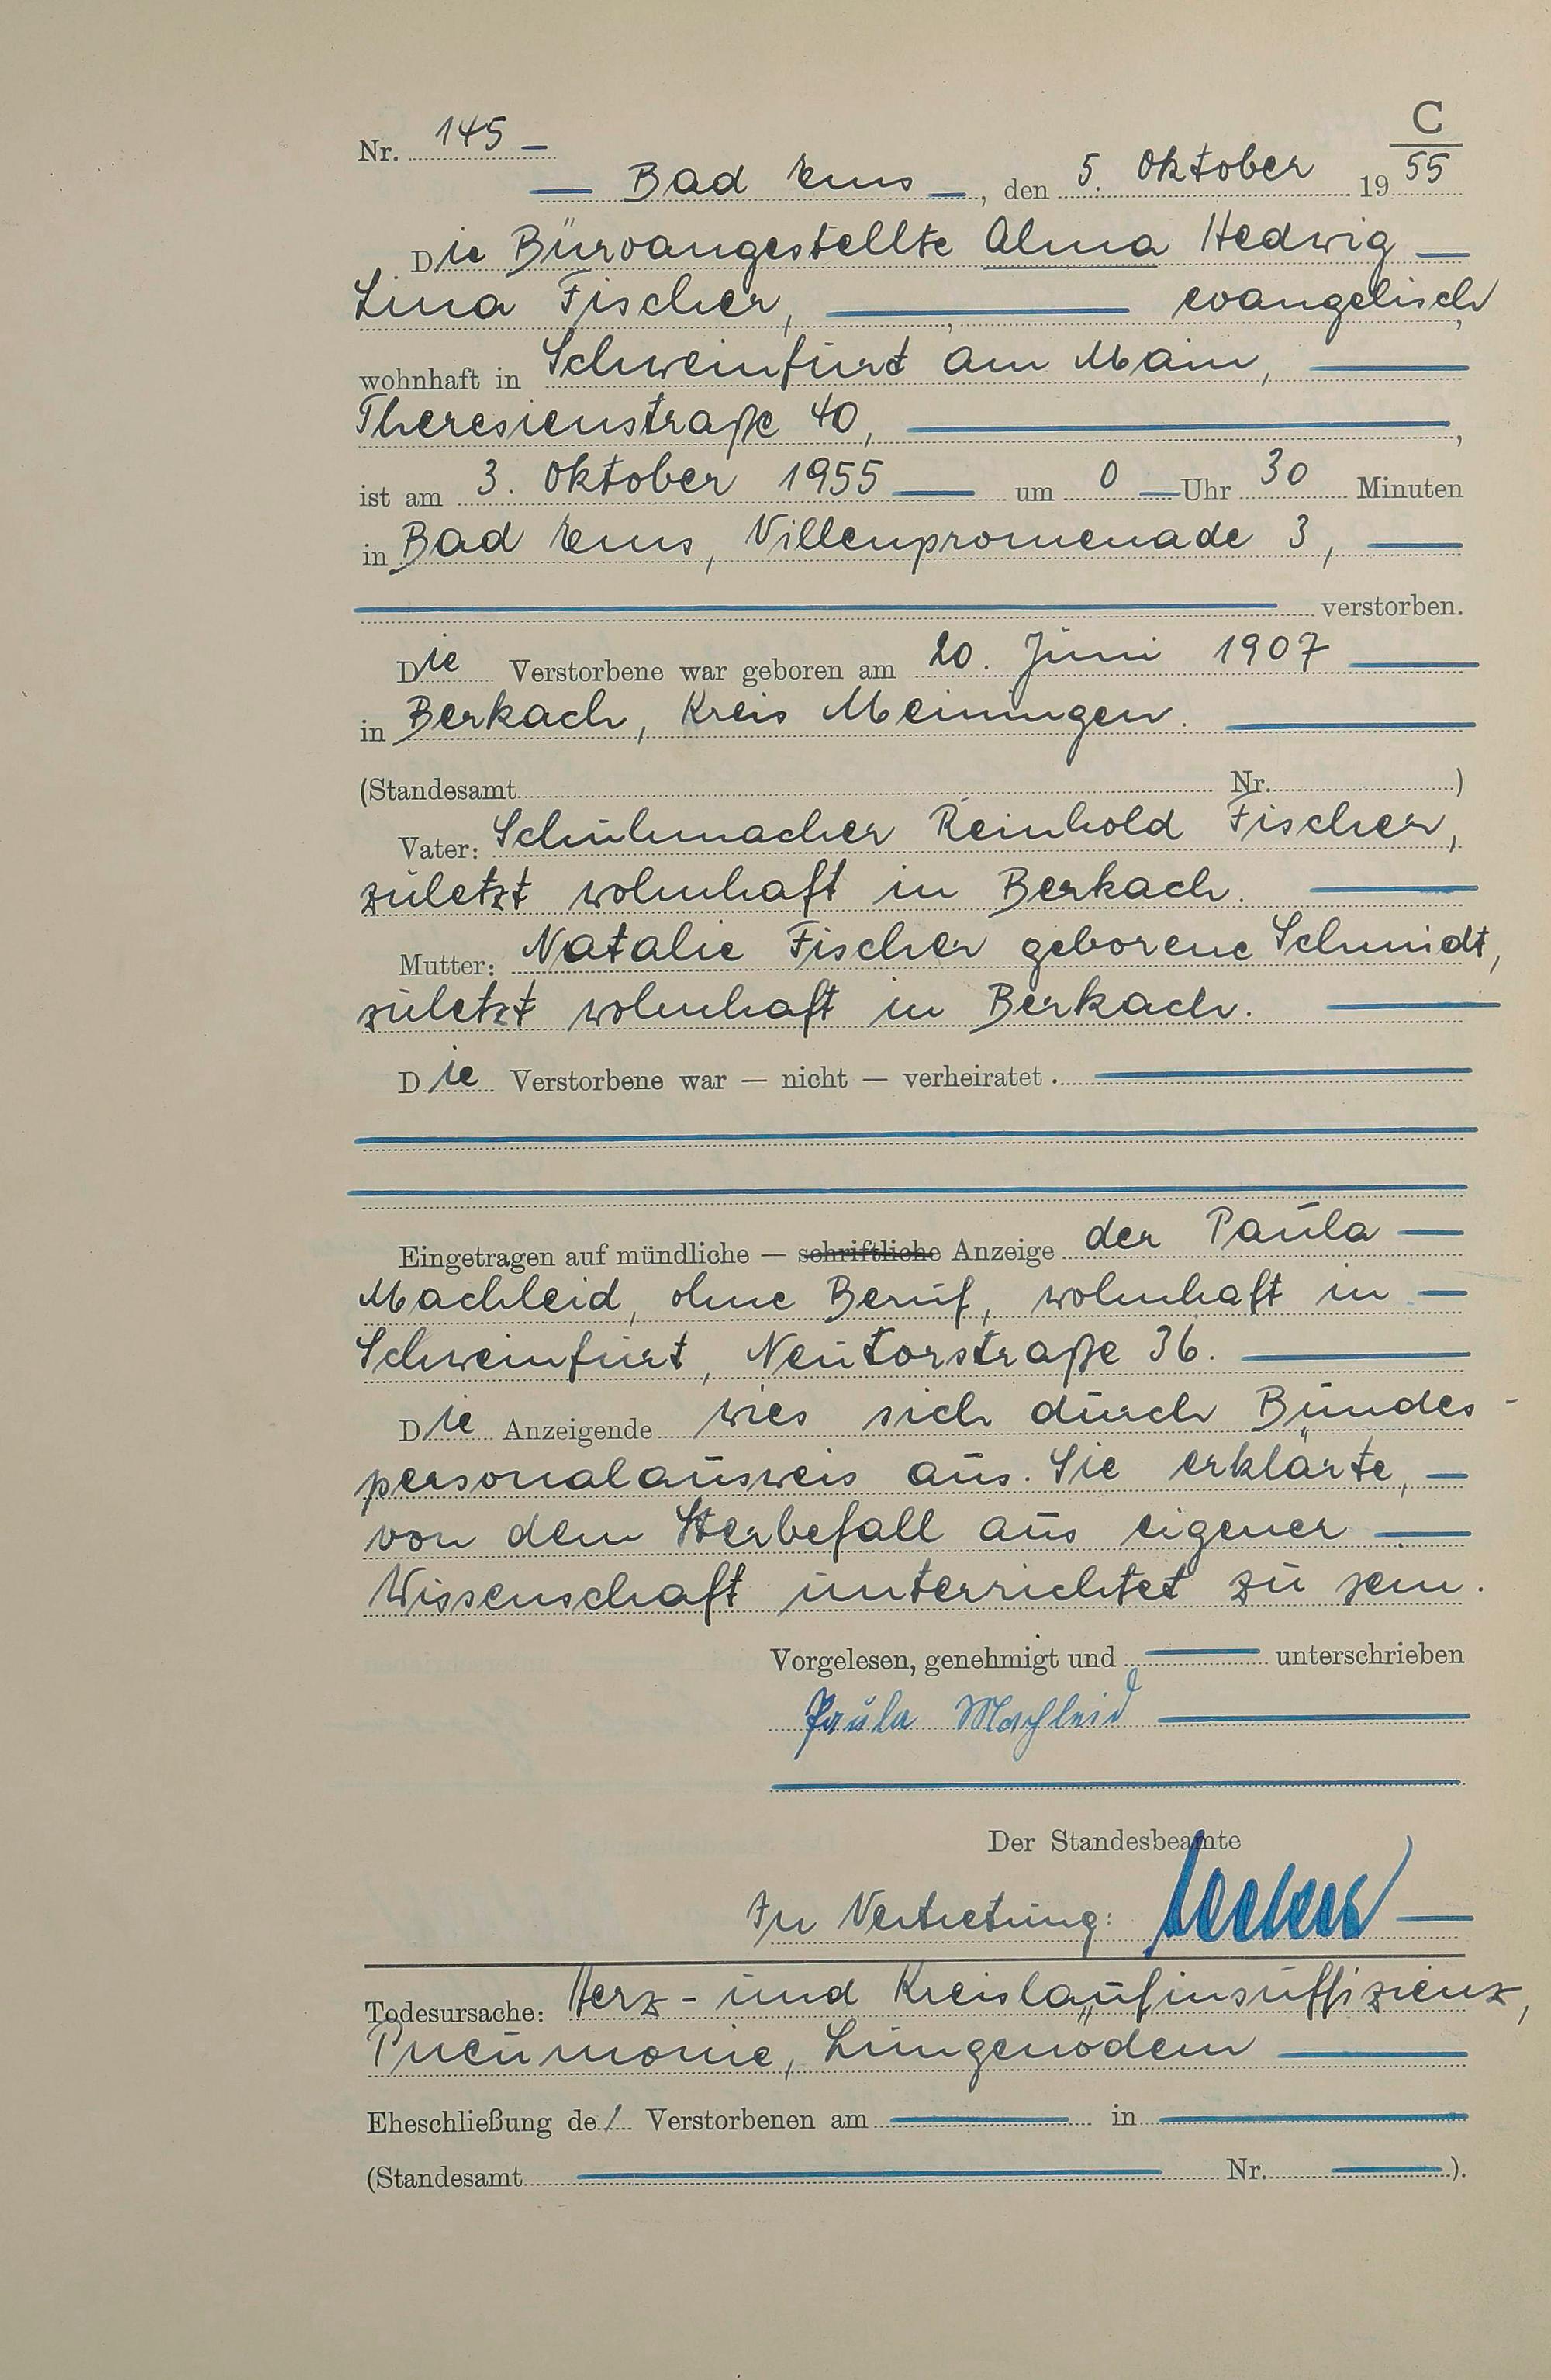 C
Nr. 145 —
— Bad Ems —, den 5. Oktober 1955
Die Büroangestellte Alma Hedwig —
Lina Fischer, — evangelisch,
wohnhaft in Schweinfurt am Main, —
Theresienstraße 40, —,
ist am 3. Oktober 1955 — um 0 — Uhr 30 Minuten
in Bad Ems, Villenpromenade 3, —
— verstorben.
Die Verstorbene war geboren am 20. Juni 1907 —
in Berkach, Kreis Meiningen. —
(Standesamt Nr. )
Vater: Schuhmacher Reinhold Fischer,
zuletzt wohnhaft in Berkach. —
Mutter: Natalie Fischer geborene Schmidt,
zuletzt wohnhaft in Berkach. —
Die Verstorbene war — nicht — verheiratet. —
Eingetragen auf mündliche — schriftliche Anzeige der Paula —
Machleid, ohne Beruf, wohnhaft in —
Schweinfurt, Neutorstraße 36. —
Die Anzeigende wies sich durch Bundes-
personalausweis aus. Sie erklärte, —
von dem Sterbefall aus eigener —
Wissenschaft unterrichtet zu sein.
Vorgelesen, genehmigt und — unterschrieben
Paula Machleid —
Der Standesbeamte
In Vertretung: —
Todesursache: Herz- und Kreislaufinsuffizienz,
Pneumonie, Lungenödem —
Eheschließung de/ Verstorbenen am — in —
(Standesamt — Nr. —).